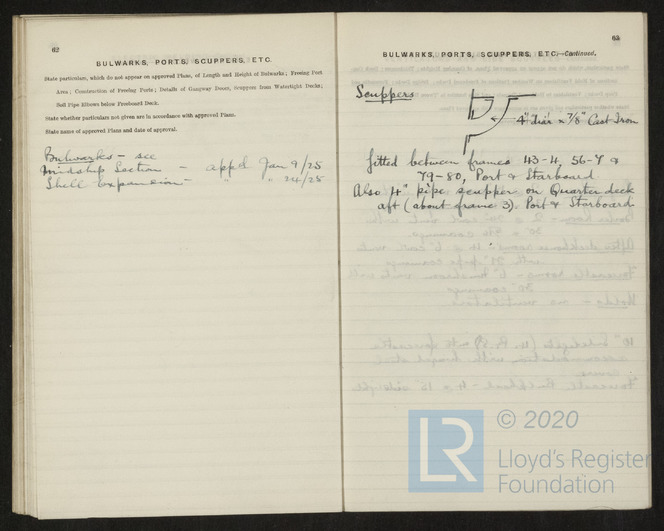 62
BULWARKS, PORTS, SCUPPERS, ETC.
State particulars, which do not appear on approved Plans, of Length and Height of Bulwarks; Freeing Port
Area; Construction of Freeing Ports; Details of Gangway Doors, Scuppers from Watertight Decks;
Soil Pipe Elbows below Freeboard Deck.
State whether particulars not given are in accordance with approved Plans.
State name of approved Plans and date of approval.
Bulwarks - see
Midship Section - appd Jan 9/25
Shell Expansion - " " 24/25
63
BULWARKS, PORTS, SCUPPERS, ETC.—Continued.
Scuppers
4" diar x 7/8" Cast Iron
fitted between frames 43-4, 56-7 &
79-80, Port & Starboard
Also 4" pipe scupper on Quarter deck
aft (about frame 3). Port & Starboard
© 2020
LR
Lloyd's Register
Foundation